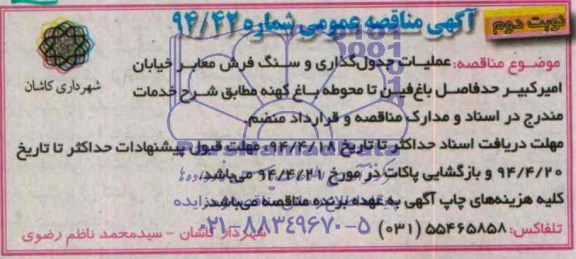 نوبت دوم
آگهی مناقصه عمومی شماره ۹۴/۴۲
شهرداری کاشان
موضوع مناقصه: عملیات جدول‌گذاری و سنگ فرش معابر خیابان
امیرکبیر حدفاصل باغ‌فین تا محوطه باغ کهنه مطابق شرح خدمات
مندرج در اسناد و مدارک مناقصه و قرارداد منضم.
مهلت دریافت اسناد حداکثر تا تاریخ ۹۴/۴/۱۸، مهلت قبول پیشنهادات حداکثر تا تاریخ
۹۴/۴/۲۰ و بازگشایی پاکات در مورخ ۹۴/۴/۲۱ می‌باشد.
کلیه هزینه‌های چاپ آگهی به عهده برنده مناقصه می‌باشد.
تلفاکس: ۵۵۴۶۵۸۵۸ (۰۳۱)
شهردار کاشان - سیدمحمد ناظم رضوی
۰۲۱-۸۸۳۴۹۶۷۰-۵